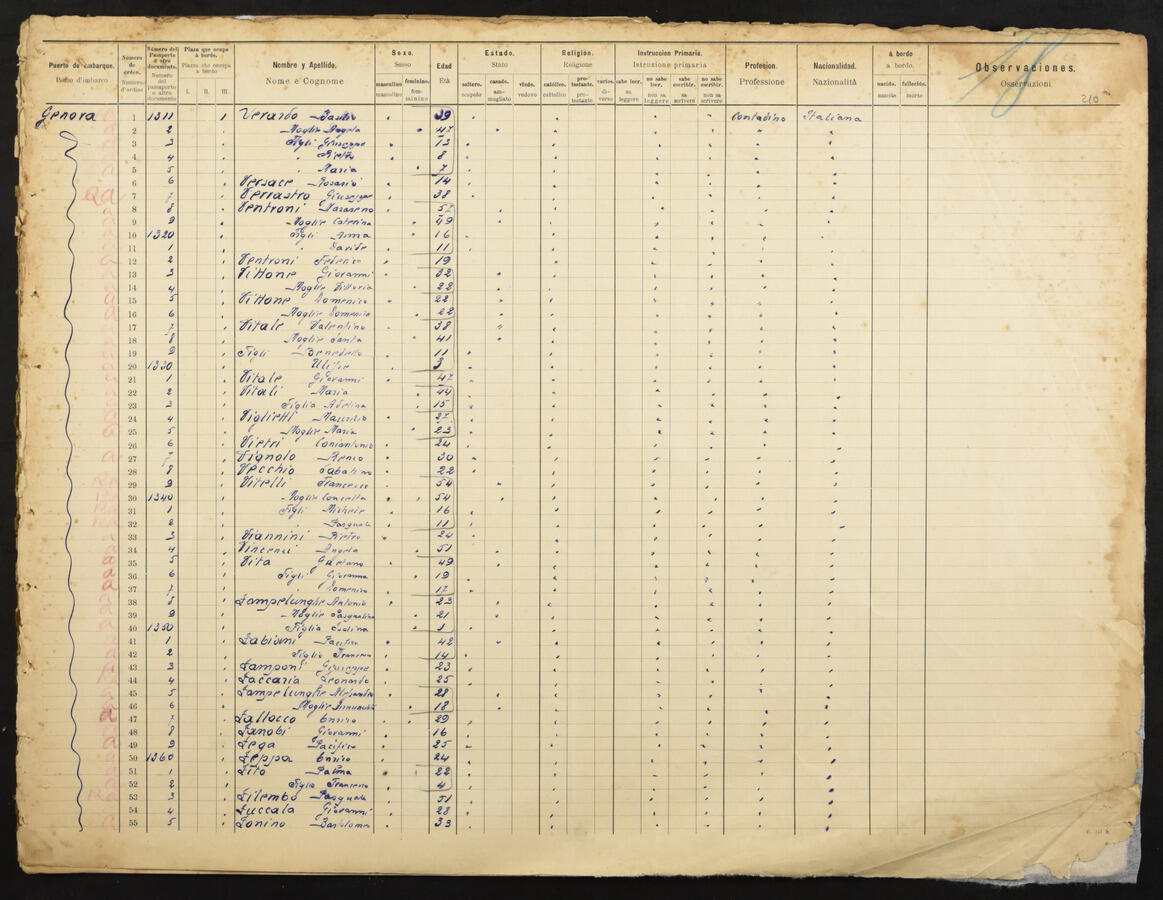 Puerto de embarque. Porto d'imbarco
Número de orden. Numero d'ordine
Número del Pasaporte ó otro documento Numero del passaporto o altro documento
Plaza que ocupa á bordo. Piazza che occupa a bordo I. II. III.
Nombre y Apellido. Nome e Cognome
Sexo. Sesso masculino maschino feminino. femminino
Edad Età
Estado. Stato soltero. scapolo casado. ammogliato viudo. vedovo
Religion. Religione católico. cattolico protestante. protestante varios. diverse
Instruccion Primaria. Istruzione primaria sabe leer. sa leggere no sabe leer. non sa leggere sabe escribir. sa scrivere no sabe escribir. non sa scrivere
Profesion. Professione
Nacionalidad. Nazionalità
á bordo a bordo. nacido. nascito fallecido. morto
Observaciones. Osservazioni
18
210
Genova 1 1311 Verardo Basilio 39 Contadino Italiana
2 2 Moglie Angela 47
3 3 Figli Giuseppe 13
4 4 " Pietro 8
5 5 " Maria 7
6 6 Versace Rosario 14
7 7 Verrastro Giuseppe 38
8 8 Ventroni Nazareno 57
9 9 Moglie Caterina 49
10 1320 Figli Anna 16
11 1 " Davide 11
12 2 Ventroni Federico 19
13 3 Vittone Giovanni 32
14 4 Moglie Vittoria 22
15 5 Vittone Domenico 22
16 6 Moglie Domenica 22
17 7 Vitale Valentino 38
18 8 Moglie Santa 41
19 9 Figli Benedetto 11
20 1330 Ulisse 3
21 1 Vitale Giovanni 47
22 2 Vitali Maria 44
23 3 Figlia Adelina 15
24 4 Viglietti Maurizio 27
25 5 Moglie Maria 23
26 6 Vietri 24
27 7 Vignolo 30
28 8 Vecchio Sabatino 22
29 9 Vitelli Francesco 54
30 1340 Moglie Concetta 54
31 1 Figli Michele 16
32 2 " Pasquale 11
33 3 Viannini Pietro 24
34 4 Vincenzi Angela 51
35 5 Vita Gaetano 49
36 6 Figli Giovanna 19
37 7 " Domenico 17
38 8 Zampelunghe Antonio 23
39 9 Moglie Pasqualina 21
40 1350 Figlia 1
41 1 Zabioni Pacifico 42
42 2 Figlio Francesco 14
43 3 Zamponi Giuseppe 23
44 4 Zaccaria Leonardo 25
45 5 Zampelunghe Alessandro 28
46 6 Moglie Annunziata 18
47 7 Zallocco Enrico 29
48 8 Zanobi Giovanni 16
49 9 Zega Pacifico 25
50 1360 Zeppa Enrico 24
51 1 Zito Palma 22
52 2 Figlio Francesco 4
53 3 Zilembo Pasquale 51
54 4 Zuccala Giovanni 28
55 5 Zonino Bartolomeo 33